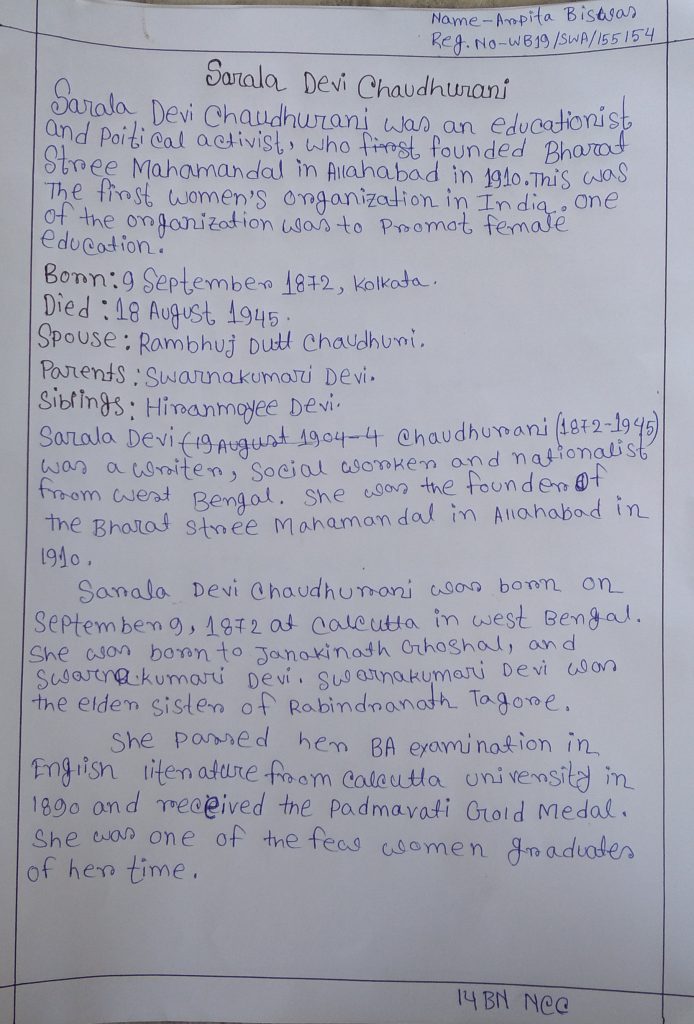 Name-Arpita Biswas
Reg. No-WB19/SWA/155154
Sarala Devi Chaudhurani
Sarala Devi Chaudhurani was an educationist
and Poitical activist, who first founded Bharat
Stree Mahamandal in Allahabad in 1910. This was
The first women's organization in India. one
of the organization was to Promot female
education.
Born: 9 September 1872, Kolkata.
Died: 18 August 1945.
Spouse: Rambhuj Dutt Chaudhuri.
Parents: Swarnakumari Devi.
Siblings: Hiranmoyee Devi.
Sarala Devi (19 August 1904-4 Chaudhurani (1872-1945)
was a writer, social worker and nationalist
from west Bengal. She was the founder of
the Bharat stree Mahamandal in Allahabad in
1910.
Sarala Devi Chaudhurani was born on
September 9, 1872 at Calcutta in west Bengal.
She was born to Janakinath Ghoshal, and
Swarnakumari Devi. Swarnakumari Devi was
the elder sister of Rabindranath Tagore.
She passed her BA examination in
English literature from Calcutta university in
1890 and received the Padmavati Gold Medal.
She was one of the few women graduates
of her time.
14 BN NCC